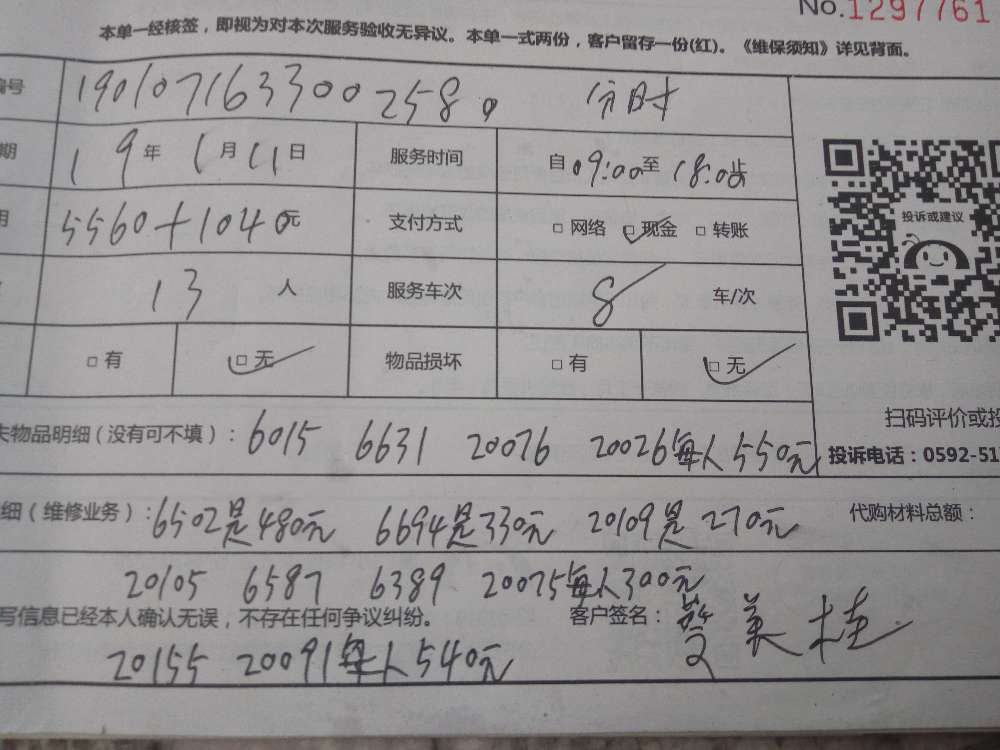 No.1297761
本单一经核签，即视为对本次服务验收无异议。本单一式两份，客户留存一份(红)。《维保须知》详见背面。
编号 190107163300258。 分时
期 19年1月11日 服务时间 自09:00至18:00止
5560+1040元 支付方式 □ 网络 □ 现金 □ 转账
投诉或建议
13人 服务车次 8 车/次
□ 有 □ 无 物品损坏 □ 有 □ 无
扫码评价或投
失物品明细（没有可不填）: 6015 6631 20076 20026每人550元
投诉电话：0592-51
细（维修业务）: 6502是480元 6694是330元 20109是270元 代购材料总额：
20105 6587 6389 20075每人300元
写信息已经本人确认无误，不存在任何争议纠纷。 客户签名： 美桂
20155 20091每人540元